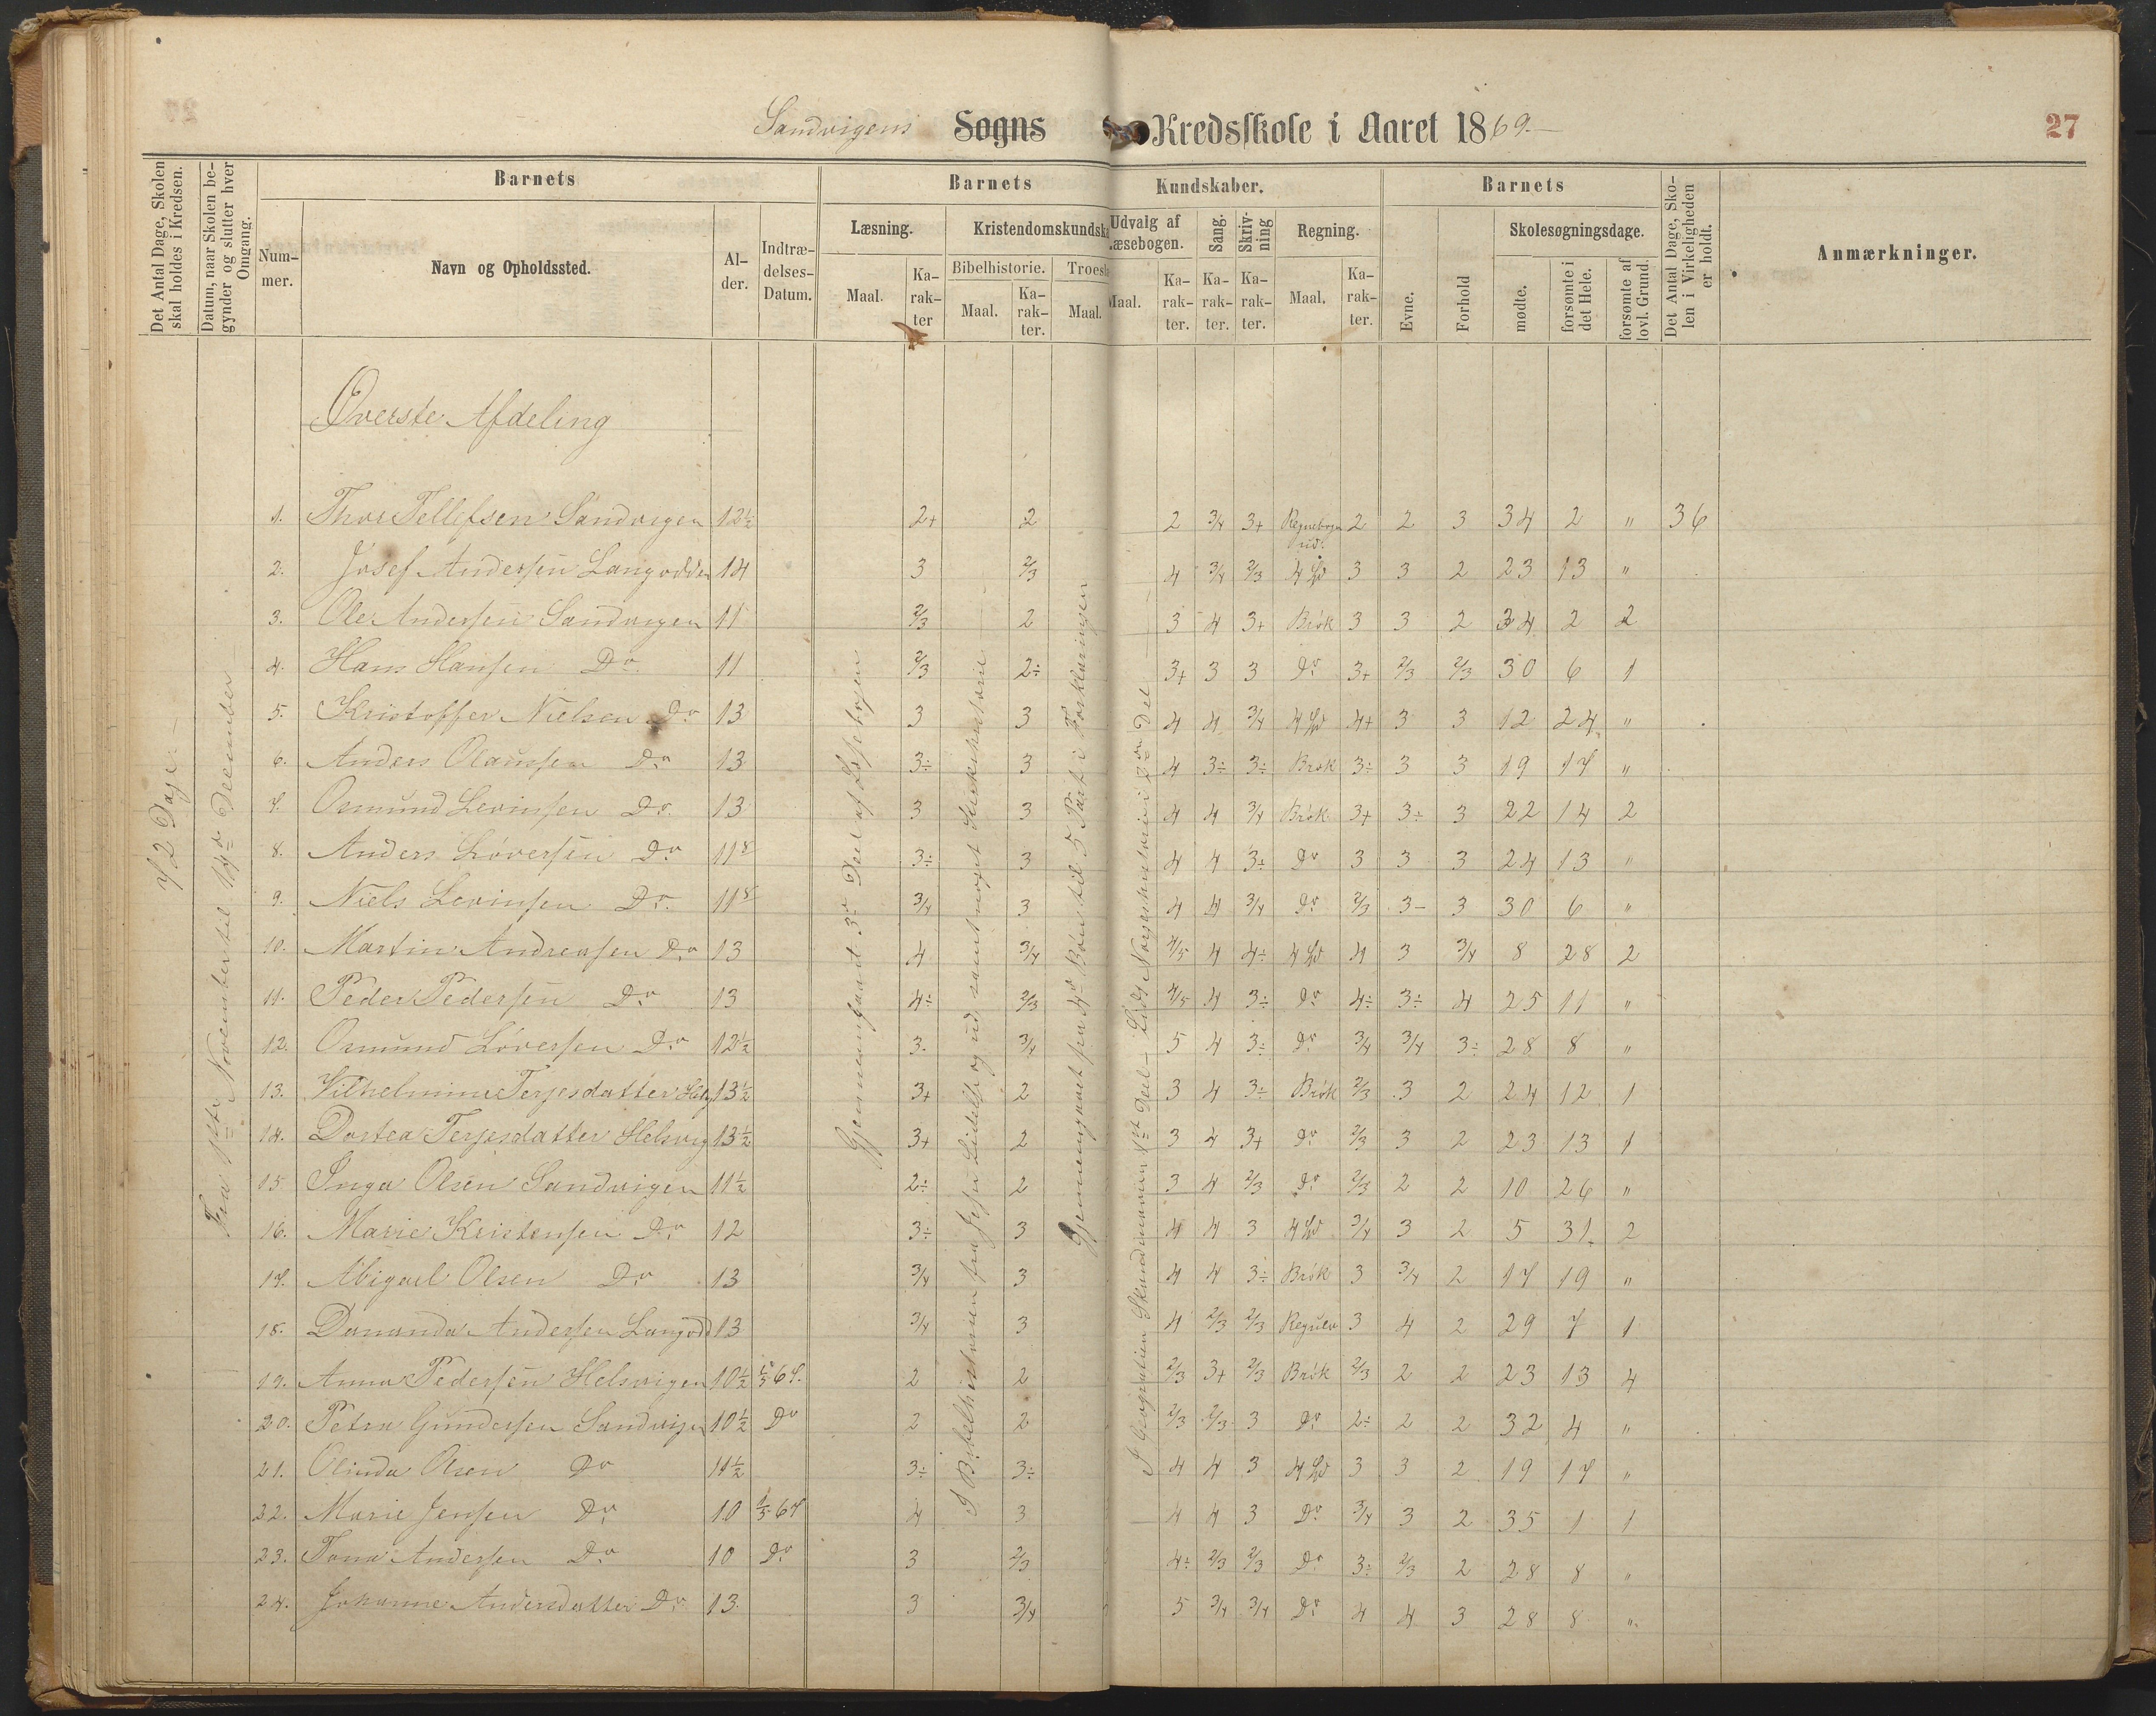 Sandvigens Sogns Kredsskole i Aaret 1869.—
27
Det Antal Dage, Skolen skal holdes i Kredsen.
Datum, naar Skolen begynder og slutter hver Omgang.
Barnets
Barnets
Kundskaber.
Barnets
Det Antal Dage, Skolen i Virkeligheden er holdt.
Anmærkninger.
Nummer.
Navn og Opholdssted.
Alder.
Indtrædelses-Datum.
Læsning.
Kristendomskundska
Udvalg af Læsebogen.
Sang.
Skrivning
Regning.
Evne.
Forhold
Skolesøgningsdage.
Maal.
Karakter
Bibelhistorie.
Troesl
Maal.
Karakter.
Maal.
Maal.
Karakter.
Karakter.
Karakter.
Maal.
Karakter.
mødte.
forsømte i det Hele.
forsømte af lovl. Grund.
Øverste Afdeling
72 Dage —
Fra 1ste November til 14de December
Gjennemgaaet 3die Deel af Læsebogen
I Bibelhistorien fra Jesu Lidelse og ud, samt noget Kirkehistorie
Gjennemgaaet fra 4de Bøn til 5 Part i Forklaringen
I Geografien Skandinavien 1ste Deel – Lidt Norgeshistorie i 2den Del
1. Thor Tellefsen Sandvigen 12½ 2+ 2 2 3/4 3+ Regnebogen ud. 2 2 3 34 2 " 36
2. Josef Andersen Langodden 14 3 2/3 4 3/4 2/3 4 Sp 3 3 2 23 13 "
3. Ole Andersen Sandvigen 11 2/3 2 3 4 3+ Brøk 3 3 2 34 2 2
4. Hans Hansen Do 11 2/3 2÷ 3+ 3 3 Do 3+ 2/3 2/3 30 6 1
5. Kristoffer Nielsen Do 13 3 3 4 4 3/4 4 Sp 4+ 3 3 12 24 "
6. Anders Olaussen Do 13 3÷ 3 4 3÷ 3÷ Brøk 3÷ 3 3 19 17 "
7. Osmund Levinsen Do 13 3 3 4 4 3/4 Brøk 3+ 3÷ 3 22 14 2
8. Anders Løversen Do 11 3÷ 3 4 4 3÷ Do 3 3 3 24 13 "
9. Niels Levinsen Do 11 3/4 3 4 4 3/4 Do 2/3 3- 3 30 6 "
10. Martin Andreasen Do 13 4 3/4 4/5 4 4÷ 4 Sp 4 3 3/4 8 28 2
11. Peder Pedersen Do 13 4÷ 2/3 4/5 4 3÷ Do 4÷ 3÷ 4 25 11 "
12. Osmund Løversen Do 12½ 3. 3/4 5 4 3÷ Do 3/4 3/4 3÷ 28 8 "
13. Vilhelmine Terjesdatter 13½ 3+ 2 3 4 3÷ Brøk 2/3 3 2 24 12 1
14. Dortea Terjesdatter Helsvig 13½ 3+ 2 3 4 3+ Do 2/3 3 2 23 13 1
15 Inga Olsen Sandvigen 11½ 2÷ 2 3 4 2/3 Do 2/3 2 2 10 26 "
16. Marie Kristensen Do 12 3÷ 3 4 4 3 4 Sp 3/4 3 2 5 31 2
17. Abigael Olsen Do 13 3/4 3 4 4 3÷ Brøk 3 3/4 2 17 19 "
18. Dananda Andersen Langodd 13 3/4 3 4 2/3 2/3 3 4 2 29 7 1
19. Anna Pedersen Helsvigen 10½ 1/5 67. 2 2 2/3 3+ 2/3 Brøk 2/3 2 2 23 13 4
20. Petra Gundersen Sandvigen 10½ Do 2 2 2/3 2/3 3 Do 2÷ 2 2 32 4 "
21. Olinda Olsen Do 11½ 3÷ 3÷ 4 4 3 4 Sp 3 3 2 19 17 "
22. Marie Jensen Do 10 1/5 67 4 3 4 4 3 Do 3/4 3 2 35 1 1
23. Tona Andersen Do 10 Do 3 2/3 4÷ 2/3 2/3 Do 3÷ 2/3 2 28 8 "
24. Johanne Andersdatter Do 13 3 3/4 5 3/4 3/4 Do 4 4 3 28 8 "